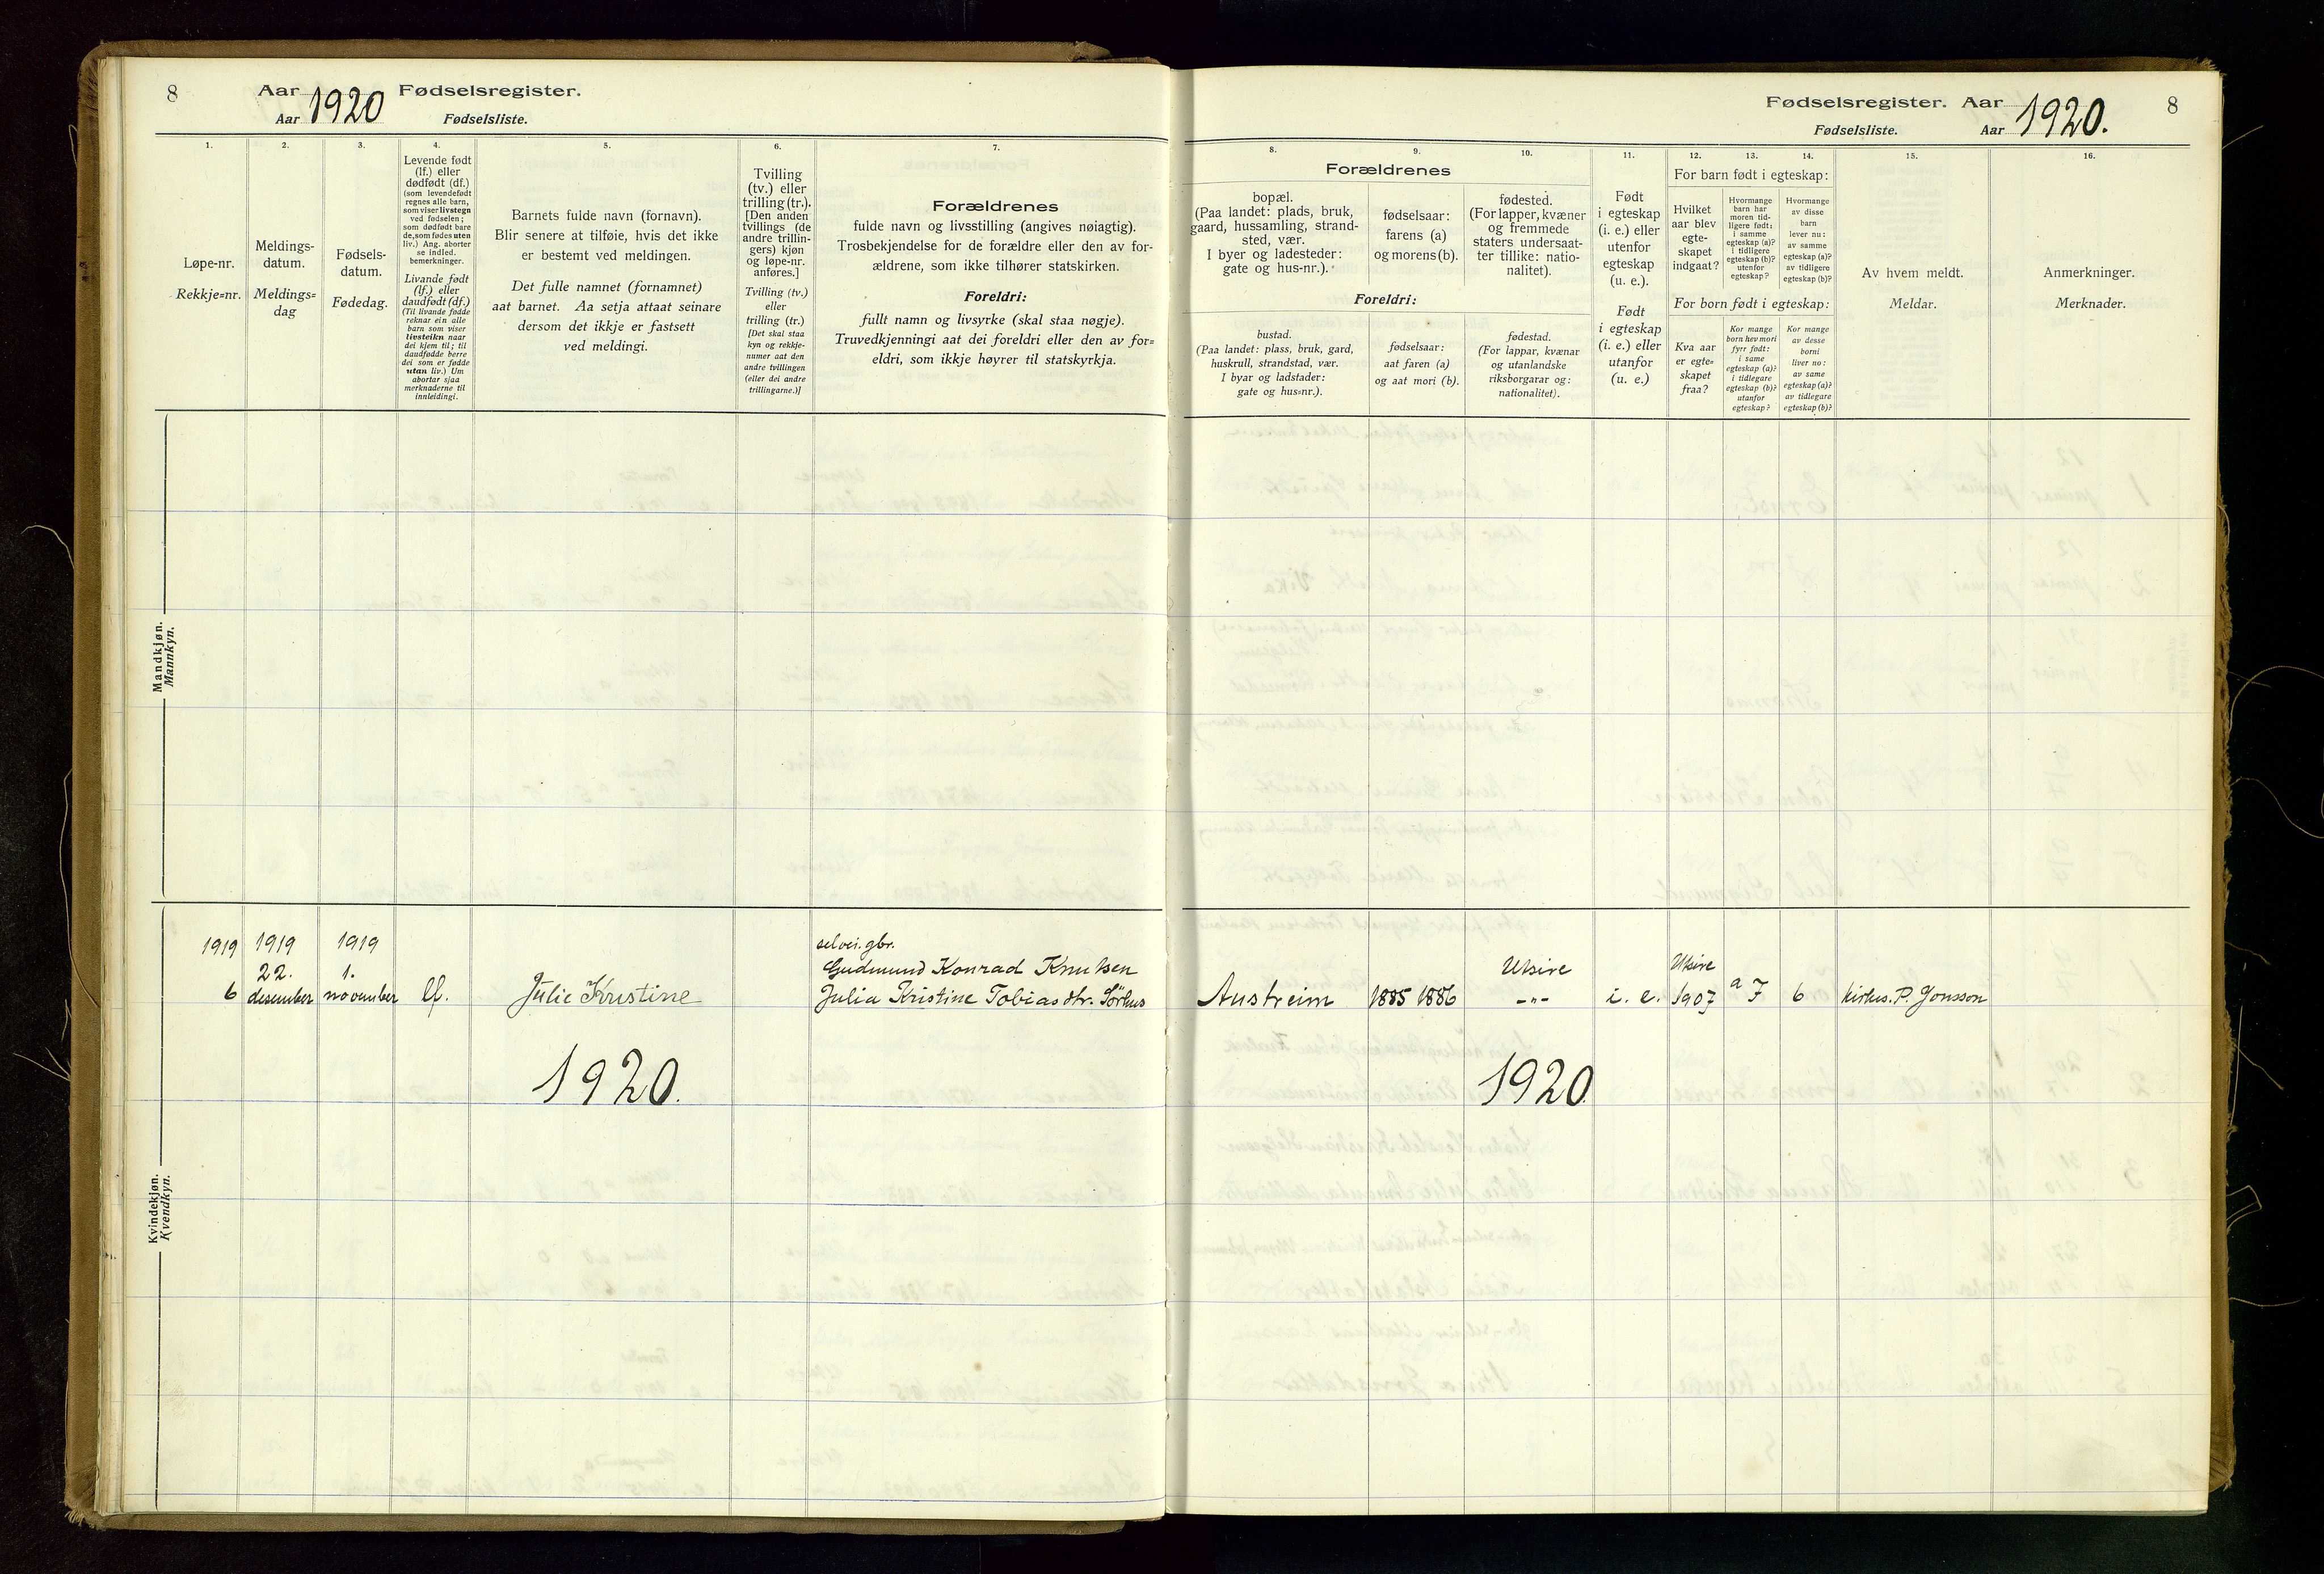 8
Aar 1920 Fødselsregister.
Aar Fødselsliste.
1.
Løpe-nr.
Rekkje=nr.
2.
Meldings-
datum.
Meldings=
dag
3.
Fødsels-
datum.
Fødedag.
4.
Levende født
(lf.) eller
dødfødt (df.)
(som levendefødt
regnes alle barn,
som viser livstegn
ved fødselen;
som dødfødt bare
de, som fødes uten
liv.) Ang. aborter
se indled.
bemerkninger.
Livande født
(lf.) eller
daudfødt (df.)
(Til livande fødde
reknar ein alle
barn som viser
livsteikn naar
dei kjem til; til
daudfødde berre
dei som er fødde
utan liv.) Um
abortar sjaa
merknaderne til
innleidingi.
5.
Barnets fulde navn (fornavn).
Blir senere at tilføie, hvis det ikke
er bestemt ved meldingen.
Det fulle namnet (fornamnet)
aat barnet. Aa setja attaat seinare
dersom det ikkje er fastsett
ved meldingi.
6.
Tvilling
(tv.) eller
trilling (tr.).
[Den anden
tvillings (de
andre trillin-
gers) kjøn
og løpe-nr.
anføres.]
Tvilling (tv.)
eller
trilling (tr.)
[Det skal staa
kyn og rekkje-
numer aat den
andre tvillingen
(eller dei andre
trillingarne.)]
7.
Forældrenes
fulde navn og livsstilling (angives nøiagtig).
Trosbekjendelse for de forældre eller den av for-
ældrene, som ikke tilhører statskirken.
Foreldri:
fullt namn og livsyrke (skal staa nøgje).
Truvedkjenningi aat dei foreldri eller den av for=
eldri, som ikkje høyrer til statskyrkja.
Mandkjøn.
Mannkyn.
1919 1919 1919
22. 1.
6 desember november lf. Julie Kristine
selvei. gbr.
Gudmund Konrad Knutsen
Julia Kristine Tobiasdtr. Sörhus
1920.
Kvindekjøn.
Kvendkyn.
Fødselsregister. Aar 1920. 8
Fødselsliste. Aar
8. 9. 10.
Forældrenes
bopæl.
(Paa landet: plads, bruk,
gaard, hussamling, strand-
sted, vær.
I byer og ladesteder:
gate og hus-nr.).
fødselsaar:
farens (a)
og morens (b).
fødested.
(For lapper, kvæner
og fremmede
staters undersaat-
ter tillike: natio-
nalitet).
Foreldri:
bustad.
(Paa landet: plass, bruk, gard,
huskrull, strandstad, vær.
I byar og ladstader:
gate og hus=nr.).
fødselsaar:
aat faren (a)
og aat mori (b).
fødestad.
(For lappar, kvænar
og utanlandske
riksborgarar og:
nationalitet).
11.
Født
i egteskap
(i. e.) eller
utenfor
egteskap
(u. e.).
Født
i egteskap
(i. e.) eller
utanfor
(u. e.)
12. 13. 14.
For barn født i egteskap:
Hvilket
aar blev
egte-
skapet
indgaat?
Hvormange
barn har
moren tid-
ligere født:
i samme
egteskap (a)?
i tidligere
egteskap (b)?
utenfor
egteskap?
Hvormange
av disse
barn
lever nu:
av samme
egteskap (a)?
av tidligere
egteskap (b)?
For born født i egteskap:
Kva aar
er egte=
skapet
fraa?
Kor mange
born hev mori
fyrr født:
i same
egteskap (a)?
i tidlegare
egteskap (b)?
utanfor
egteskap?
Kor mange
av desse
borni
liver no:
av same
egteskap (a)?
av tidlegare
egteskap (b)?
15.
Av hvem meldt.
Meldar.
16.
Anmerkninger.
Merknader.
Austreim 1885 1886 Utsire
-"- i. e. Utsire
1907 a 7 6 kirkes. P. Jonsson
1920.